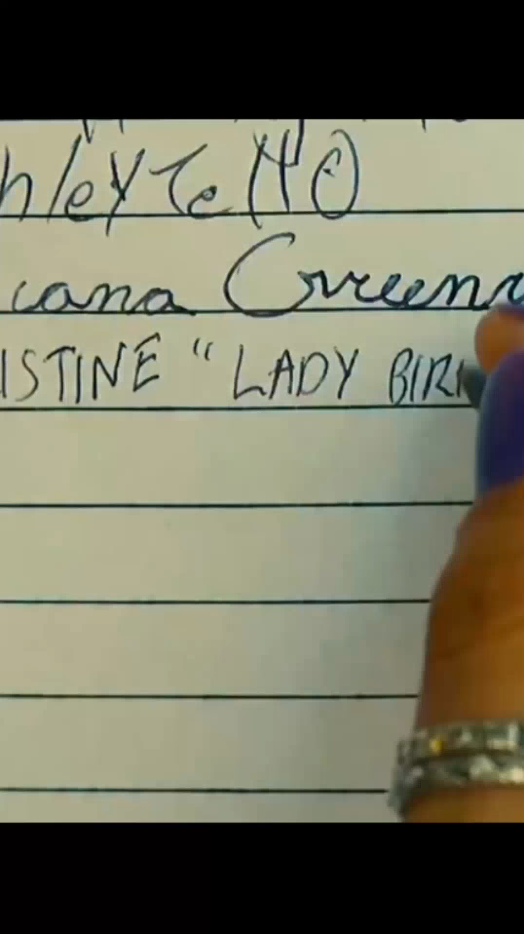 hley Tello
cana Greenw
ISTINE "LADY BIRD